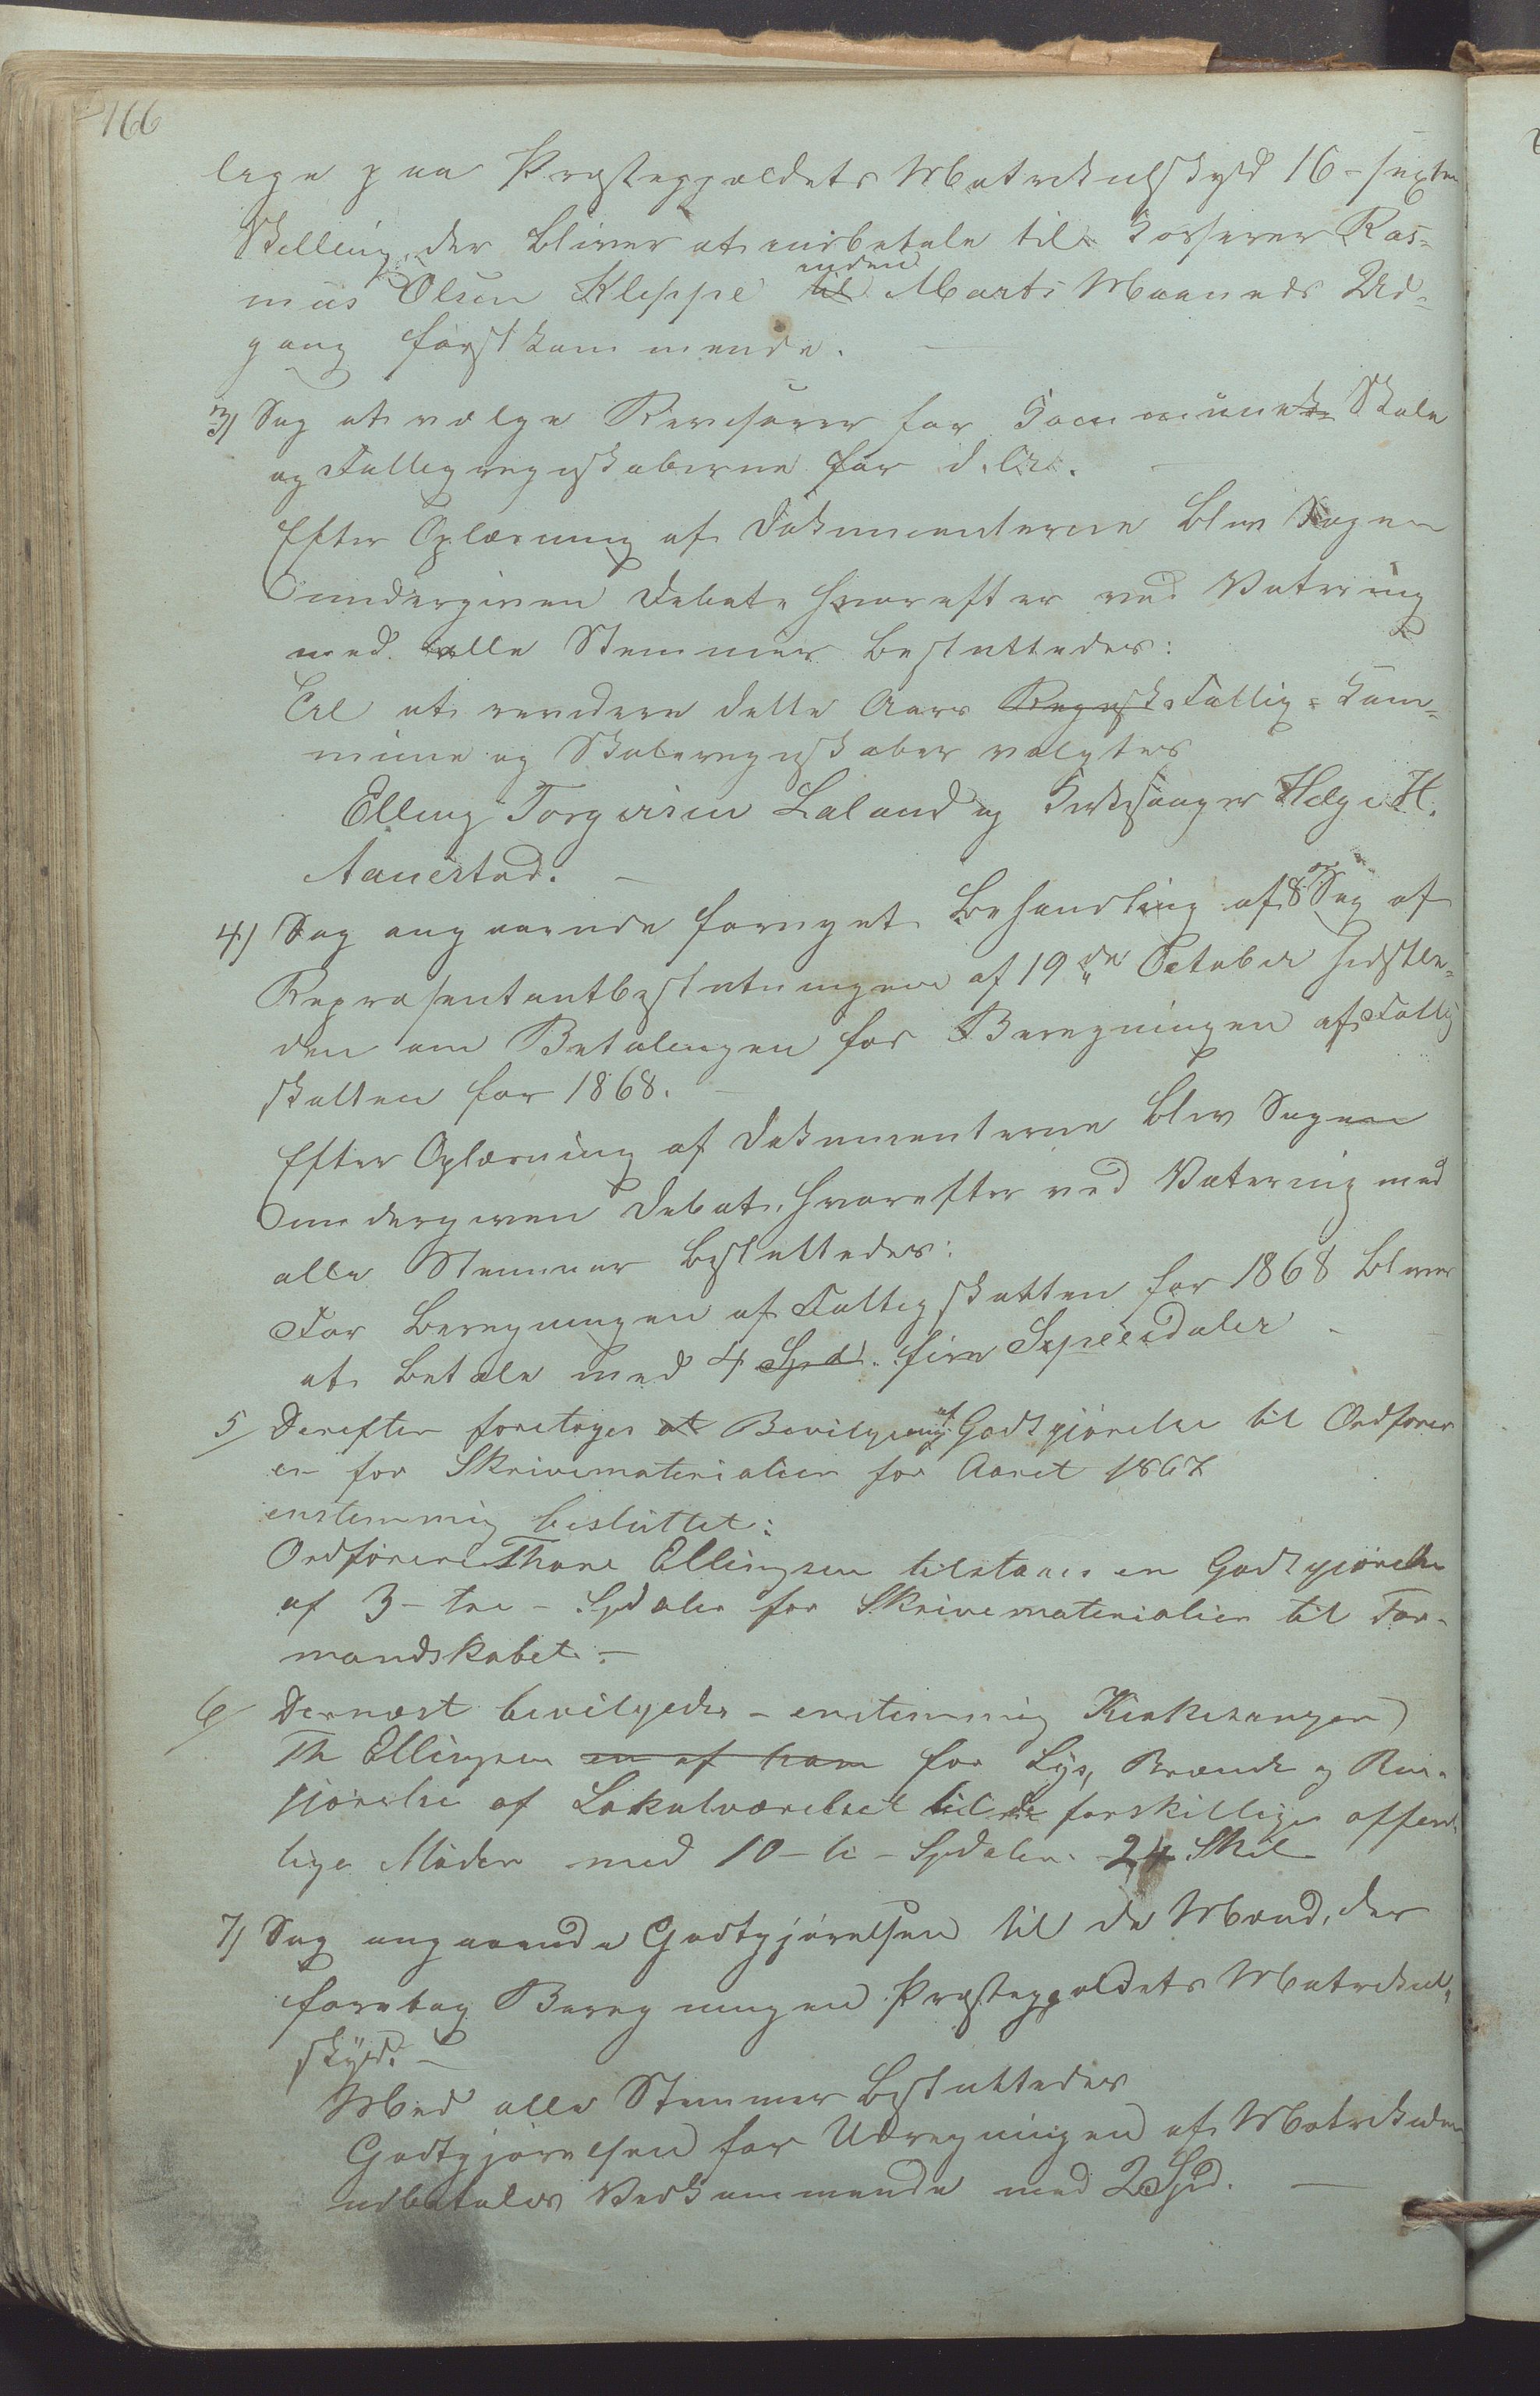 166
lige paa Præstegjældets Matrikulskyld 16 - sexten
Skilling, der bliver at indbetale til Kasserer Ras-
mus Olsen Kleppe til inden Marts Maaneds Ud-
gang førstkommende. -
3) Sag at vælge Revisorer for Kommune Skole
og Fattigregnskaberne for d. A. -
Efter Oplæsning af Dokumenterne blev Sagen
undergiven Debat, hvorefter ved Votering
med alle Stemmer besluttedes:
Til at revidere dette Aars Regnsk Fattig- Kom-
mune og Skoleregnskaber valgtes
Elling Torgersen Laland og Kirkesanger Helge H.
Auestad. -
4) Sag angaaende fornyet Behandling af 8de Sag af
Repræsentantbeslutningen af 19de October hidstle-
den om Betalingen for Beregningen af Fattig
skatten for 1868. -
Efter Oplæsning af Dokumenterne blev Sagen
undergiven Debat, hvorefter ved Votering med
alle Stemmer besluttedes:
For Beregningen af Fattigskatten for 1868 bliver
at betale med 4 Spd. fire Speciedaler -
5/ Derefter foretoges at Bevilgning af Godtgjørelse til Ordfører
en for Skrivematerialier for Aaret 1867
enstemmig besluttet:
Ordfører Thore Ellingsen tilstaaes en Godtgjørelse
af 3 - tre - Spdaler for Skrivematerialier til For-
mandskabet. -
6/ Dernæst bevilgedes - enstemmig Kirkesanger
Th Ellingsen en af ham for Lys, Brænde og Ren-
gjørelse af Lokalværelset til de forskjellige offent-
lige Møder med 10 - ti - Spdaler. 24 Skil
7) Sag angaaende Godtgjørelsen til de Mænd, der
foretog Beregningen Præstegjældets Matrikul-
skyld. -
Med alle Stemmer besluttedes
Godtgjørelsen for Udregningen af Matrikulen
udbetales Vedkommende med 2 Spd. -